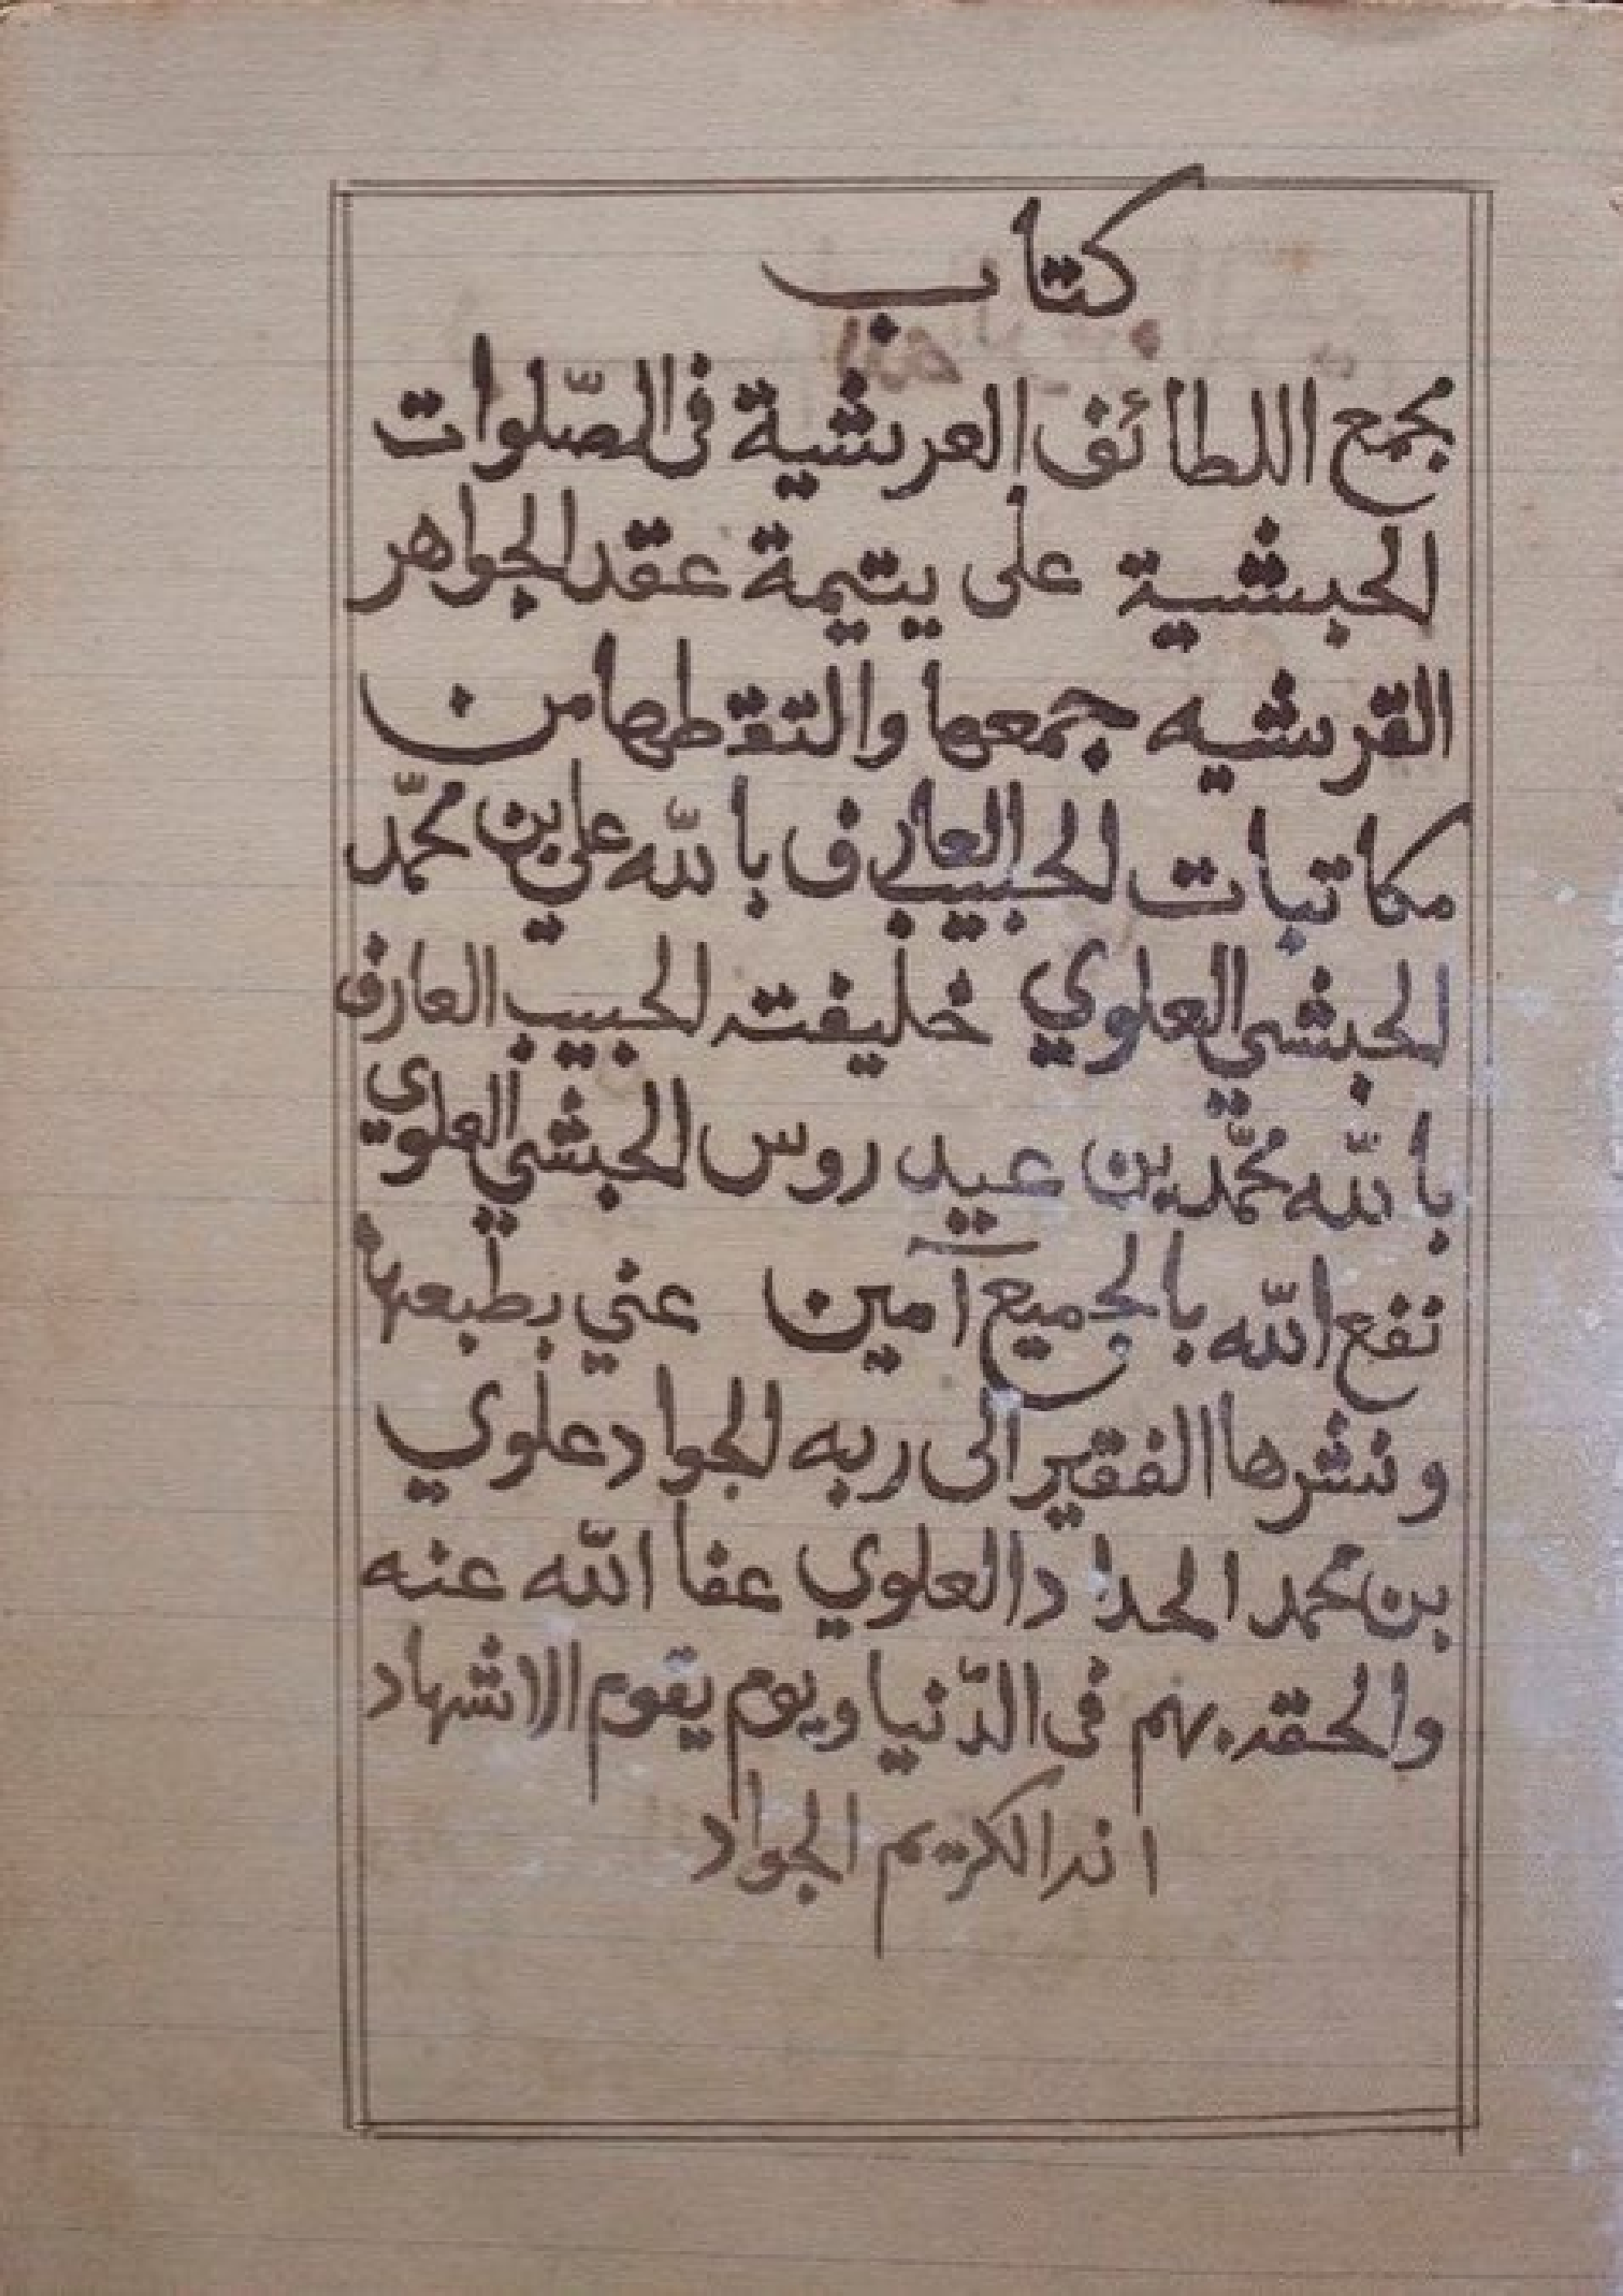 كتاب
مجمع اللطائف العرشية فى الصّلوات
الحبشية على يتيمة عقد الجواهر
القرشيه جمعها والتقطها من
مكاتبات الحبيب العارف بالله علي بن محمّد
الحبشي العلوي خليفته الحبيب العارف
بالله محمّد بن عيدروس الحبشي العلوي
نفع الله بالجميع امين عني بطبعها
ونشرها الفقير الى ربه الجواد علوي
بن محمد الحداد العلوي عفا الله عنه
والحقه بهم فى الدّنيا ويوم يقوم الاشهاد
انه الكريم الجواد